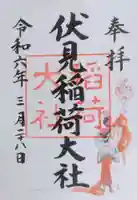 奉拝
伏見稲荷大社
稲荷
大社
令和六年三月二八日